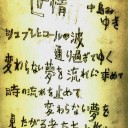 世情
中島みゆき
シュプレヒコールの波
通り過ぎてゆく
変わらない夢を流れに求めて
時の流れを止めて
変わらない夢を
見たがる者たちと